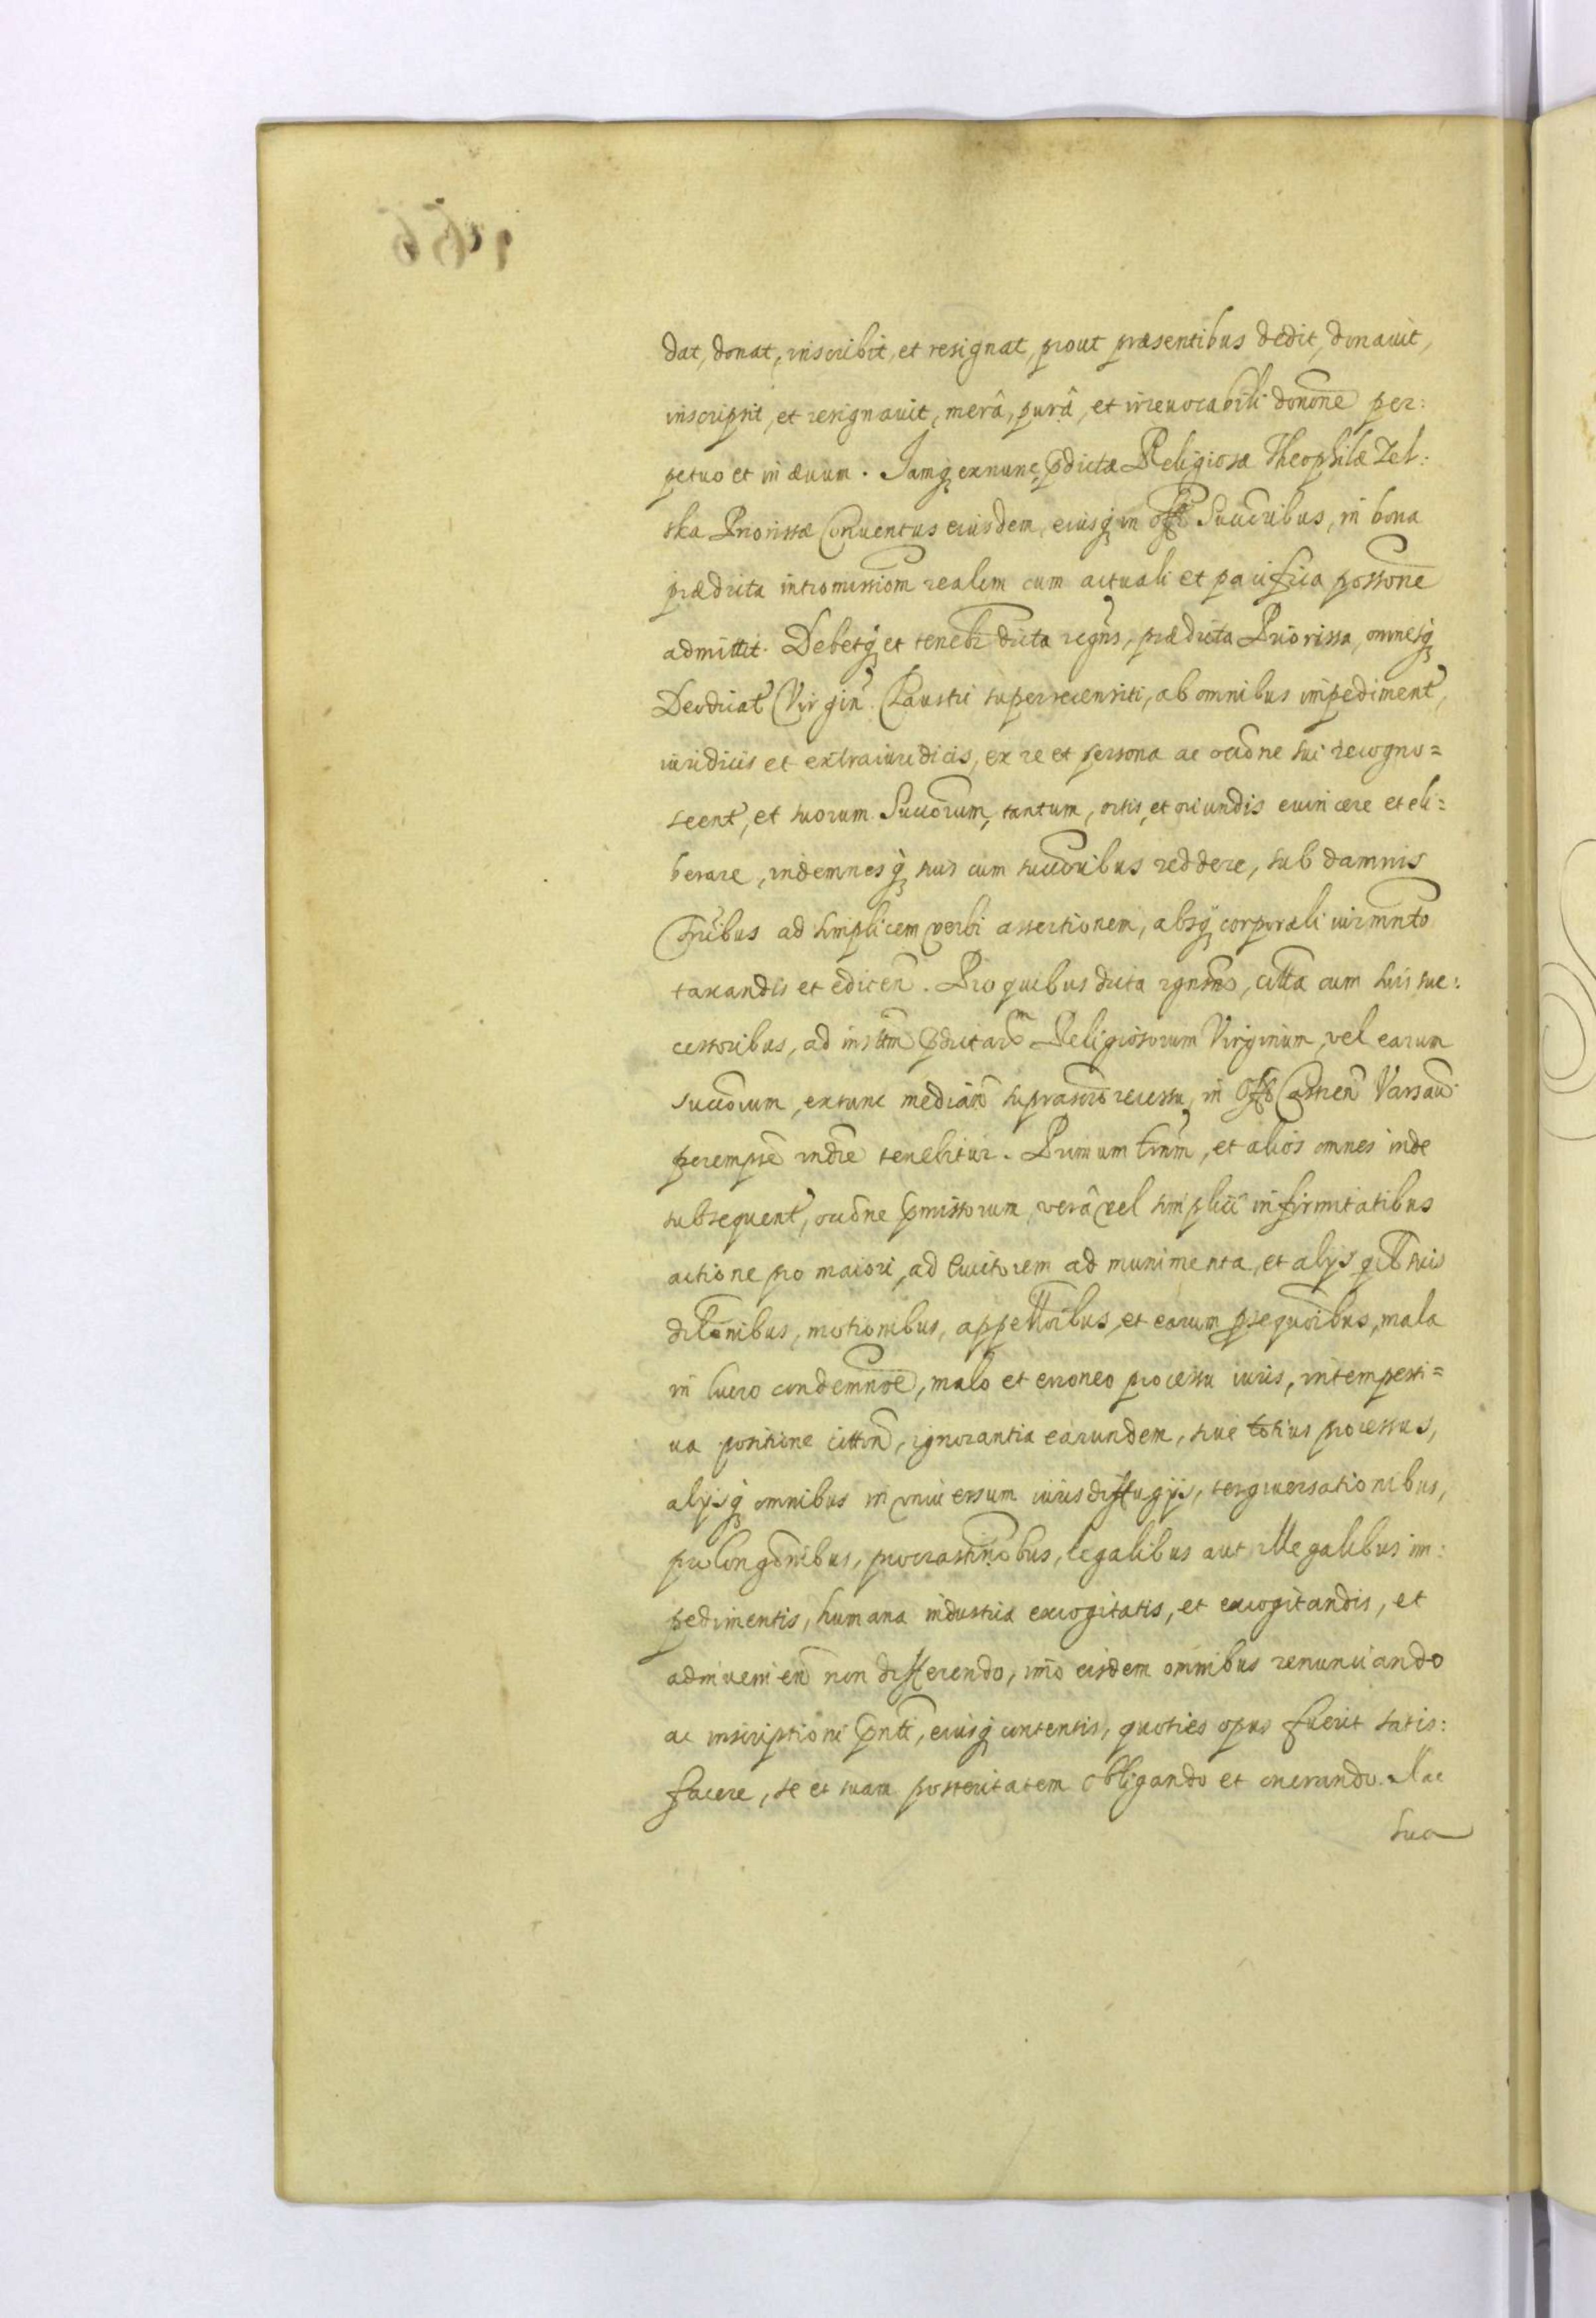 dat, donat, inscribit, et resignat, prout præsentibus dedit, donauit,
inscripsit, et resignauit, merâ, purâ, et irreuocabili donõne per:
petuo et in æuum. Iamq, exnunc, pdictæ Religiosæ Theophilæ Zel:
ska Priorissæ Conuentus eiusdem, eiusq, in offo Succoribus, in bona
prædicta intromissiom realem cum actuali et pacifica possone
admittit. Debetq, et tenebr dicta regns, prædicta Priorissa, omnesq,
Deodicat Virgin Claustri superrecensiti, ab omnibus impediment,
iuridicis et extraiuridicis, ex re et persona ac occõne sui recogno=
scent, et suorum Succorum, tantum, ortis, et oriundis euincere et eli=
berare, indemnesq, suis cum succoribus reddere, sub damnis
tribus ad simplicem verbi assertionem, absq, corporali iurmnto
taxandis et edicen. Pro quibus dicta rgns, citta cum suis suc:
cessoribus, ad instm pdictarum Religiosorum Virginum, vel earum
succorum, extunc median suprascro recessu, in Offo Castren Varsau
perempte indre tenebitur. Primum trmm, et alios omnes inde
subsequent, occõne pmissorum, verâ vel simplici infirmitatibus
actione pro maiori, ad Euictorem ad munimenta, et alys qib suis
diltonibus, motionibus, appelltõibus, et earum psequõibus, mala
in lucro condemnõe, malo et erroneo processu iuris, intempesti=
ua positione citton, ignorantia earundem, siue totius processus,
alysq, omnibus in vniuersum iuris diffugijs, tergiuersationibus,
prolongõnibus, procrastinõbus, legalibus aut illegalibus im:
pedimentis, humana industria excogitatis, et excogitandis, et
adinuenien non differendo, imo eisdem omnibus renunciando
ac inscriptioni pnti, eiusq, contentis, quoties opus fuerit satis:
facere, se et suam posteritatem obligando et onerando. Hac
sua